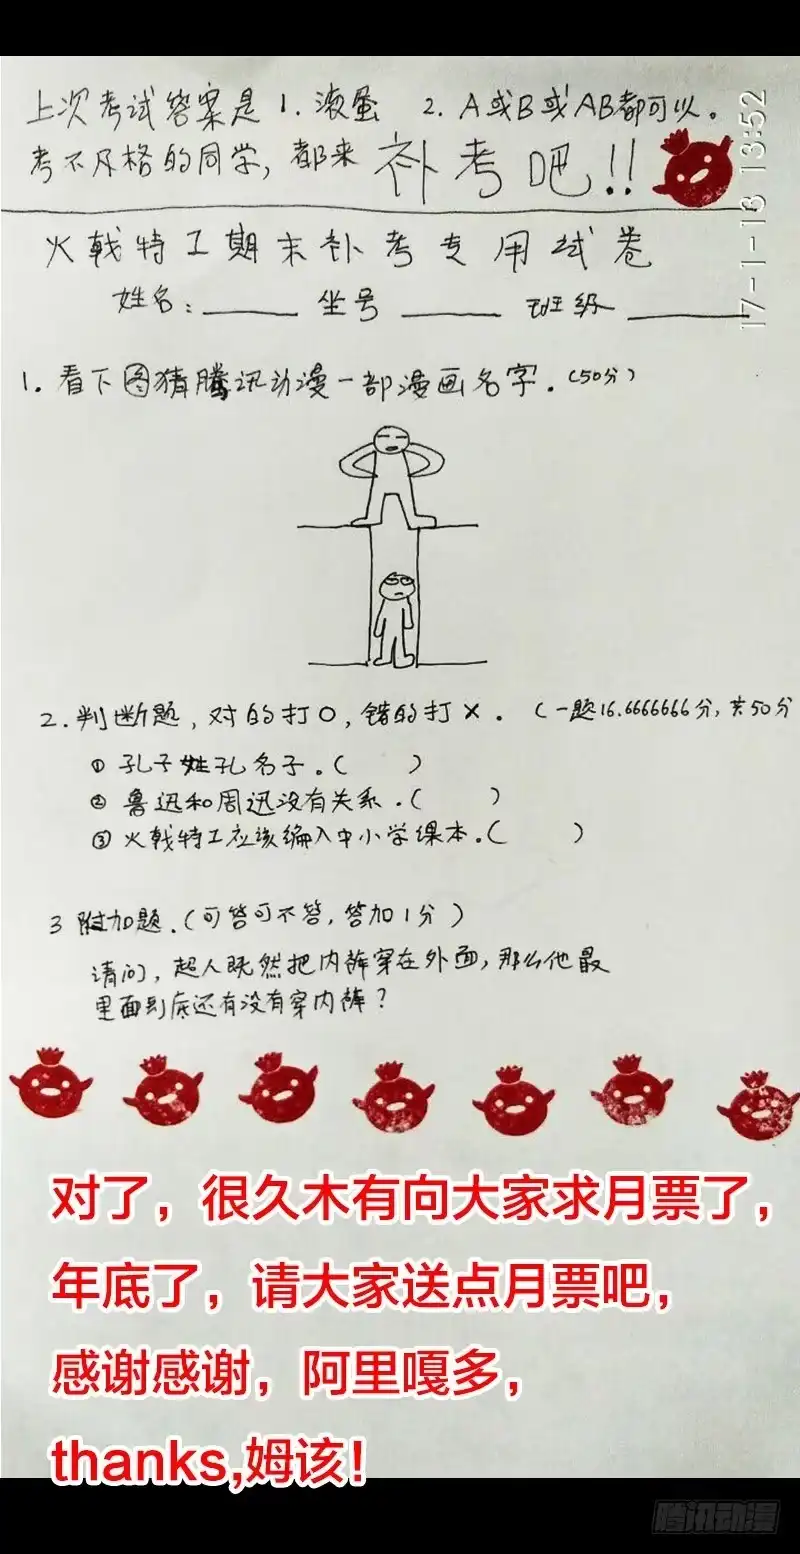 上次考试答案是 1. 滚蛋 2. A或B或AB都可以。
考不及格的同学,都来 补考吧!!
17-1-13 13:52
火戟特工期末补考专用试卷
姓名:____ 坐号____ 班级____
1. 看下图猜腾讯动漫一部漫画名字.(50分)
2. 判断题,对的打O,错的打×.(一题16.6666666分,共50分
① 孔子姓孔名子.( )
② 鲁迅和周迅没有关系.( )
③ 火戟特工应该编入中小学课本.( )
3 附加题.(可答可不答,答加1分)
请问,超人既然把内裤穿在外面,那么他最
里面到底还有没有穿内裤?
对了,很久木有向大家求月票了,
年底了,请大家送点月票吧,
感谢感谢,阿里嘎多,
thanks,姆该!
腾讯动漫